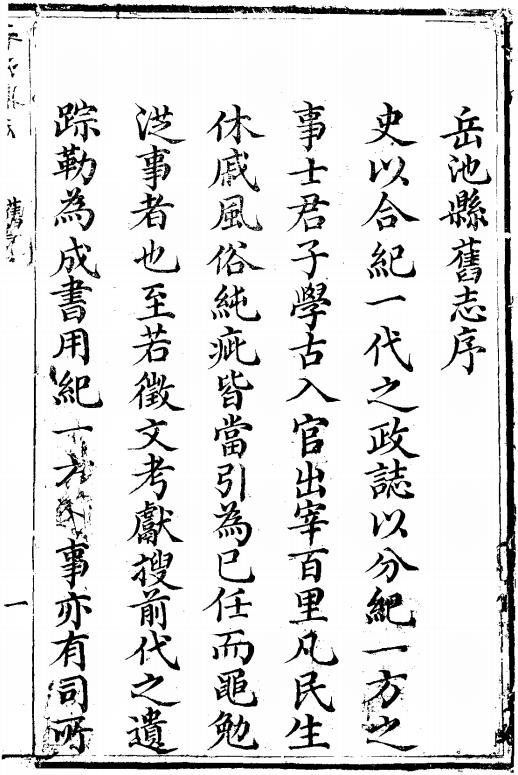 岳池縣舊志序
史以合紀一代之政誌以分紀一方之
事士君子學古入官出宰百里凡民生
休戚風俗純疵皆當引為已任而黽勉
從事者也至若徵文考獻搜前代之遺
踪勒為成書用紀一方之事亦有司所
舊序
一